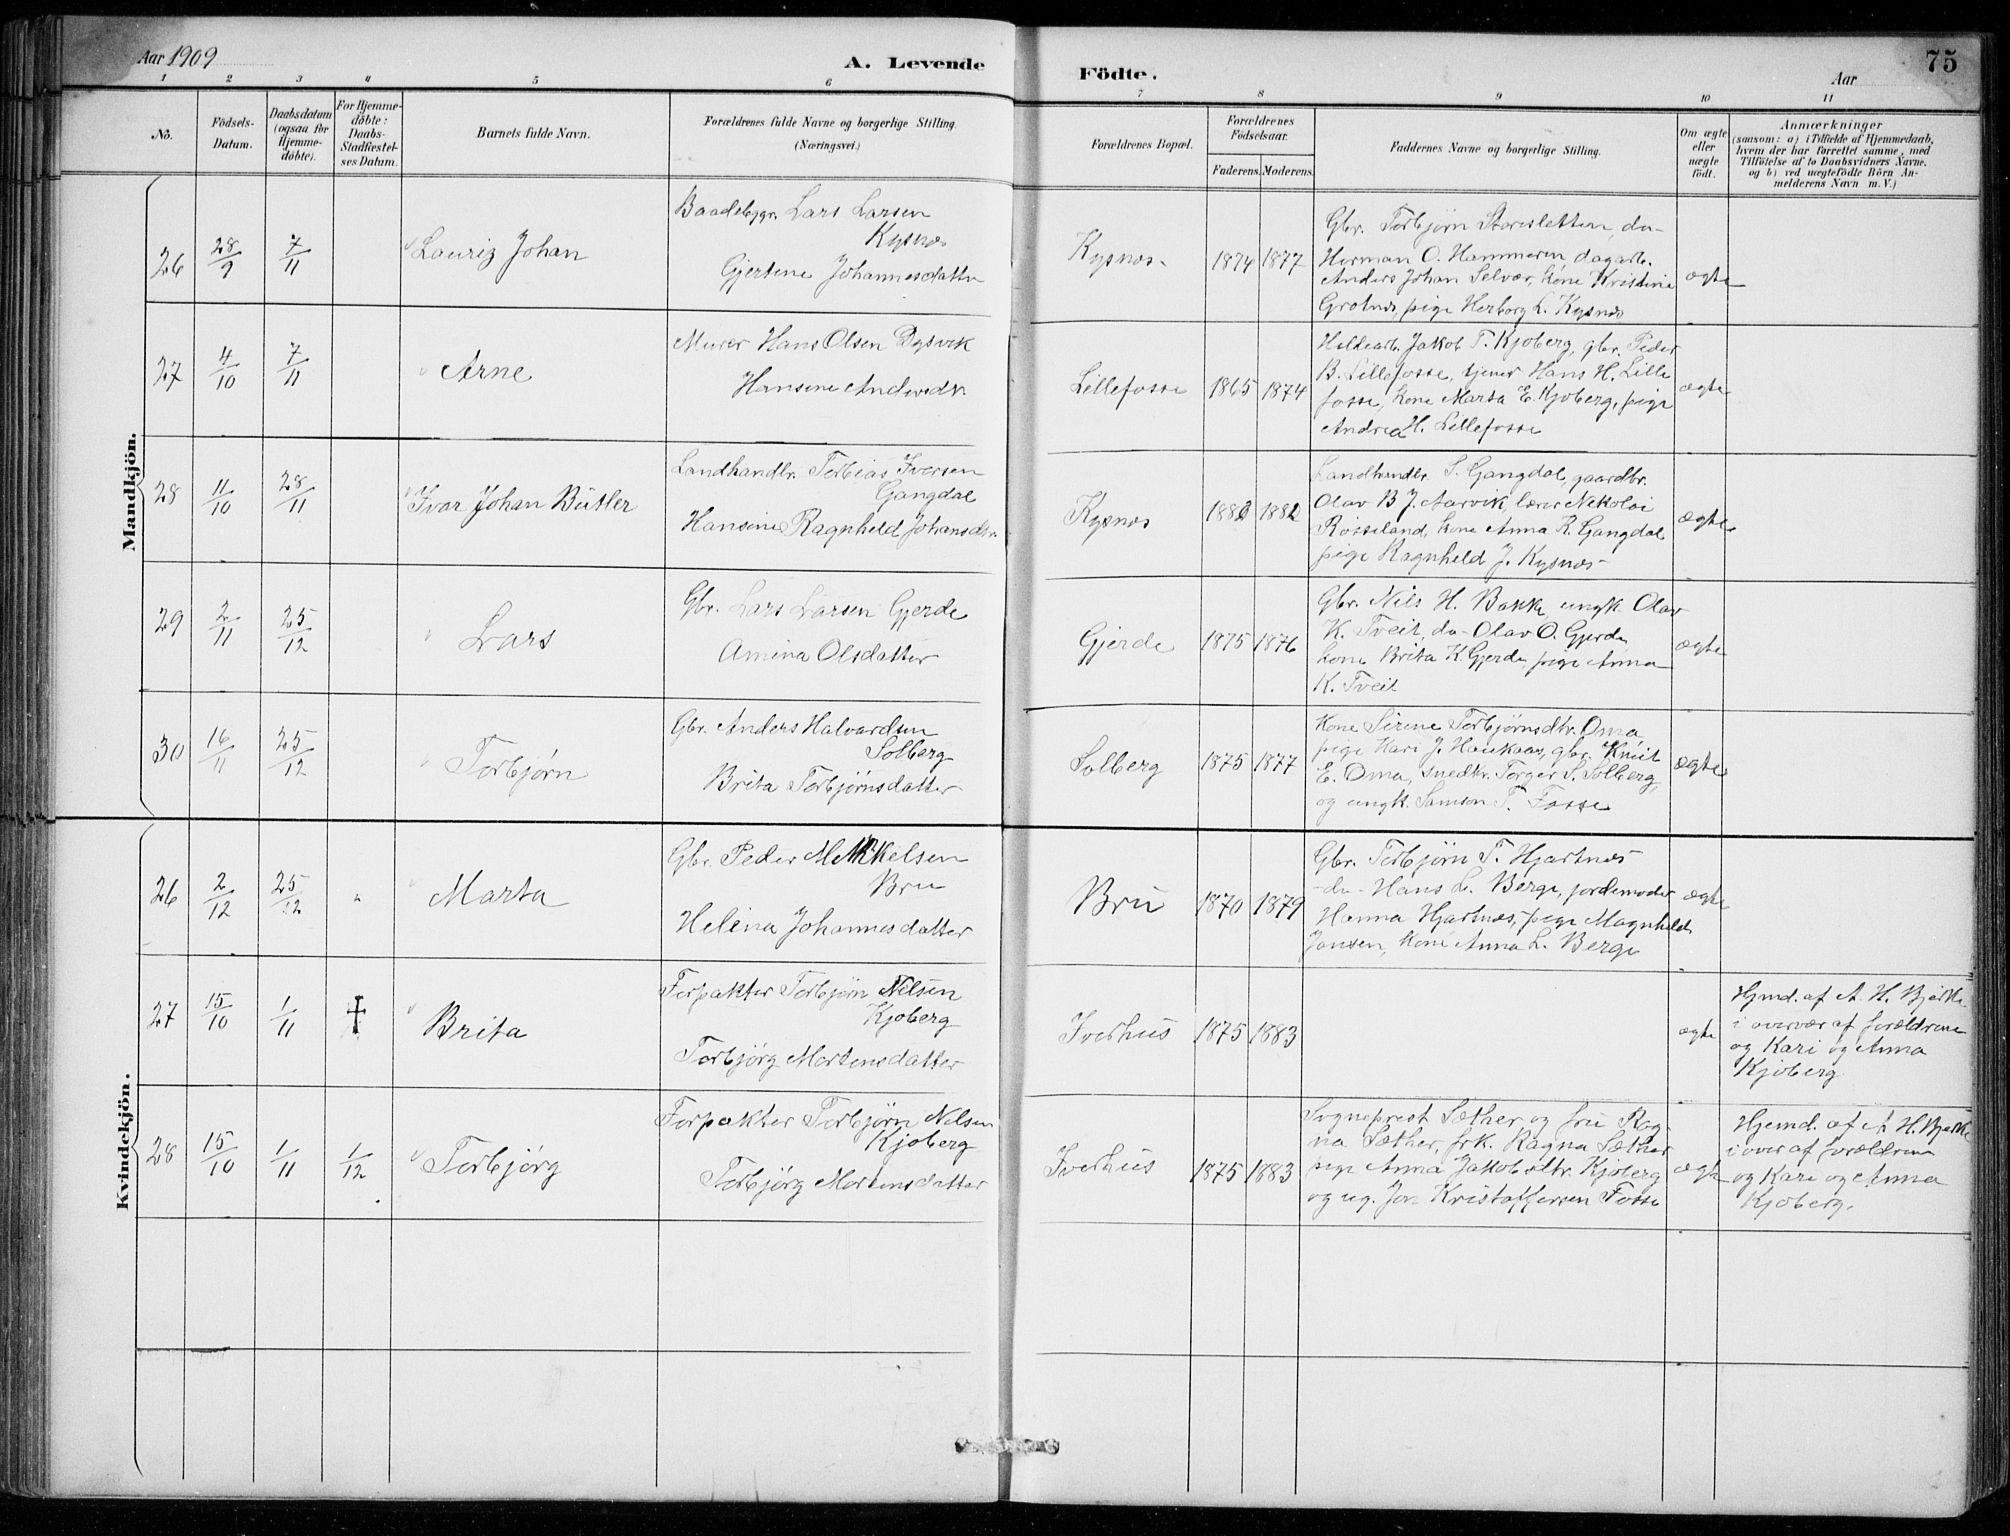 Aar 1909
A. Levende
Födte.
Aar
75
1 2 3 4 5 6 7 8 9 10 11
No.
Födsels-Datum.
Daabsdatum (ogsaa for Hjemme-døbte).
For Hjemme-døbte: Daabs-Stadfæstel-ses Datum.
Barnets fulde Navn.
Forældrenes fulde Navne og borgerlige Stilling. (Næringsvei.)
Forældrenes Bopæl.
Forældrenes Födselsaar.
Faderens. Moderens.
Faddernes Navne og borgerlige Stilling.
Om ægte eller uægte födt.
Anmærkninger
(saasom: a) i Tilfælde af Hjemmedaab,
hvem der har forrettet samme, med
Tilföielse af to Daabsvidners Navne.
og b) ved uægtefödte Börn An-
melderens Navn m. V.)
Mandkjön.
26 28/9 7/11 Lauriz Johan
Baadebygr. Lars Larsen
Kysnæs
Gjertine Johannesdatter
Kysnæs 1874 1877
Gbr. Torbjørn Storesletten, do-
Herman O. Hammeren dagarb.
Anders Johan Selvær, kone Kristine
Grotnæs, pige Herborg L. Kysnæs
ægte
27 4/10 7/11 Arne
Murer Hans Olsen Dysvik
Hansine Andersdtr.
Lillefosse 1865 1874
Jakob T. Kjoberg, gbr. Peder
B. Lillefosse, tjener Hans H. Lille
fosse, kone Marta E. Kjoberg, pige
Andrea H. Lillefosse
ægte
28 11/10 28/11 Ivar Johan Bütler
Landhandlr. Tobias Iversen
Gangdal
Hansine Ragnhild Johansdtr.
Kysnæs 1882 1882
Landhandlr. S. Gangdal, gaardbr.
Olav B J. Aarvik, lærer Nikolai
Rosseland, kone Anna R. Gangdal
pige Ragnhild J. Kysnæs
ægte
29 2/11 25/12 Lars
Gbr. Lars Larsen Gjerde
Amina Olsdatter
Gjerde 1875 1876
Gbr. Nils H. Bakke ungk. Olav
K. Tveit, do- Olav O. Gjerde
kone Brita K. Gjerde, pige Anna
K. Tveit
ægte
30 16/11 25/12 Torbjørn
Gbr. Anders Halvardsen
Solberg
Brita Torbjørnsdatter
Solberg 1875 1877
kone Sirene Torbjørnsdtr. Oma
pige Kari J. Haukaas, gbr. Knut
E. Oma, snedkr. Torger S. Solberg,
og ungk. Samson T. Fosse
ægte
Kvindekjön.
26 2/12 25/12 " Marta
Gbr. Peder Mikkelsen
Bru
Helina Johannesdatter
Bru 1870 1879
Gbr. Torbjørn T. Hjartnæs
-do- Hans L. Berge, jordemoder
Hanna Hjartnæs, pige Magnhild
Jansen, kone Anna L. Berge
ægte
27 15/10 1/11 † Brita
Forpakter Torbjørn Nilsen
Kjoberg
Torbjørg Mortensdatter
Iverhus 1875 1883
ægte
Hjmd. af A. H. Bjerke
i overvær af forældrene
og Kari og Anna
Kjoberg
28 15/10 1/11 1/12 Torbjørg
Forpakter Torbjørn Nilsen
Kjoberg
Torbjørg Mortensdatter
Iverhus 1875 1883
Sogneprest Sæther og fru Rag-
na Sæther, frk. Ragna Sæther
pige Anna Jakobsdtr. Kjoberg
og ug. Jon Kristoffersen Fosse
ægte
Hjemd. af A H. Bjerke
i over af forældrene
og Kari og Anna
Kjoberg.